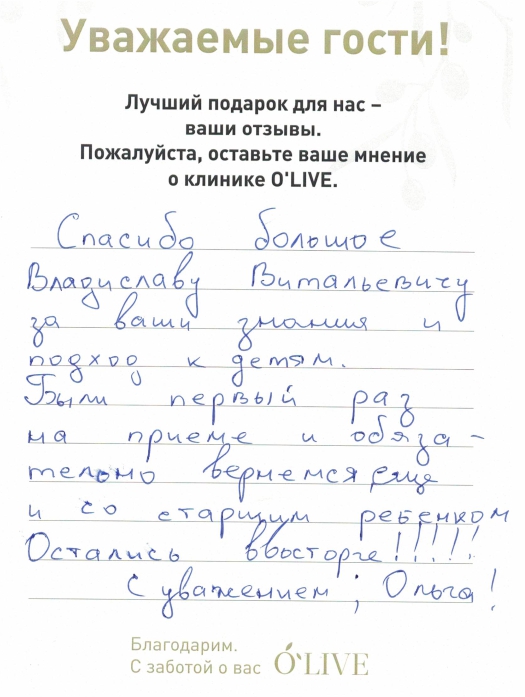 Уважаемые гости!
Лучший подарок для нас –
ваши отзывы.
Пожалуйста, оставьте ваше мнение
о клинике O'LIVE.
Спасибо большое
Владиславу Витальевичу
за ваши знания и
подход к детям.
Были первый раз
на приеме и обяза-
тельно вернемся еще
и со старшим ребенком
Остались ввосторге!!!!!
С уважением; Ольга!
Благодарим.
С заботой о вас O'LIVE